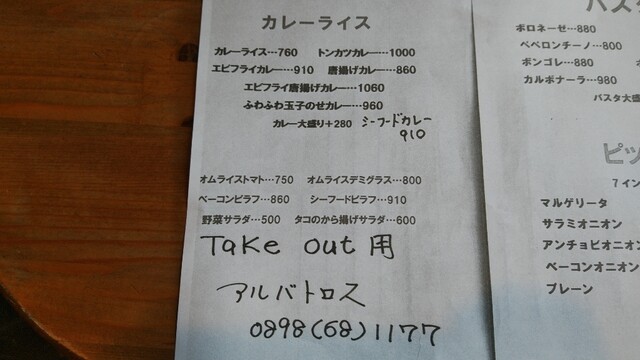 カレーライス
カレーライス…760 トンカツカレー…1000
エビフライカレー…910 唐揚げカレー…860
エビフライ唐揚げカレー…1060
ふわふわ玉子のせカレー…960
カレー大盛り+280 シーフードカレー
910
オムライストマト…750 オムライスデミグラス…800
ベーコンピラフ…860 シーフードピラフ…910
野菜サラダ…500 タコのから揚げサラダ…600
Take out 用
アルバトロス
0898(68)1177
パスタ
ボロネーゼ…880
ペペロンチーノ…800
ボンゴレ…880
カルボナーラ…980
パスタ大盛
ピッ
7イン
マルゲリータ
サラミオニオン
アンチョビオニオン
ベーコンオニオン
プレーン